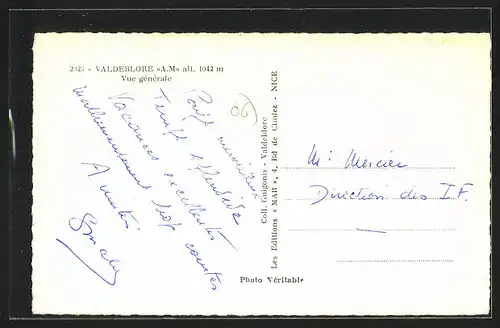 2925 - VALDEBLORE «A.M» alt. 1042 m
Vue générale
06
Pays merveilleux
Temps splendide
Vacances excellentes
malheureusement trop courtes
Amitiés
Coll. Guigonis - Valdeblore
Les Editions « MAR », 4, Bd de Cimiez - NICE
Mr Mercier
Direction des I.F.
Photo Véritable